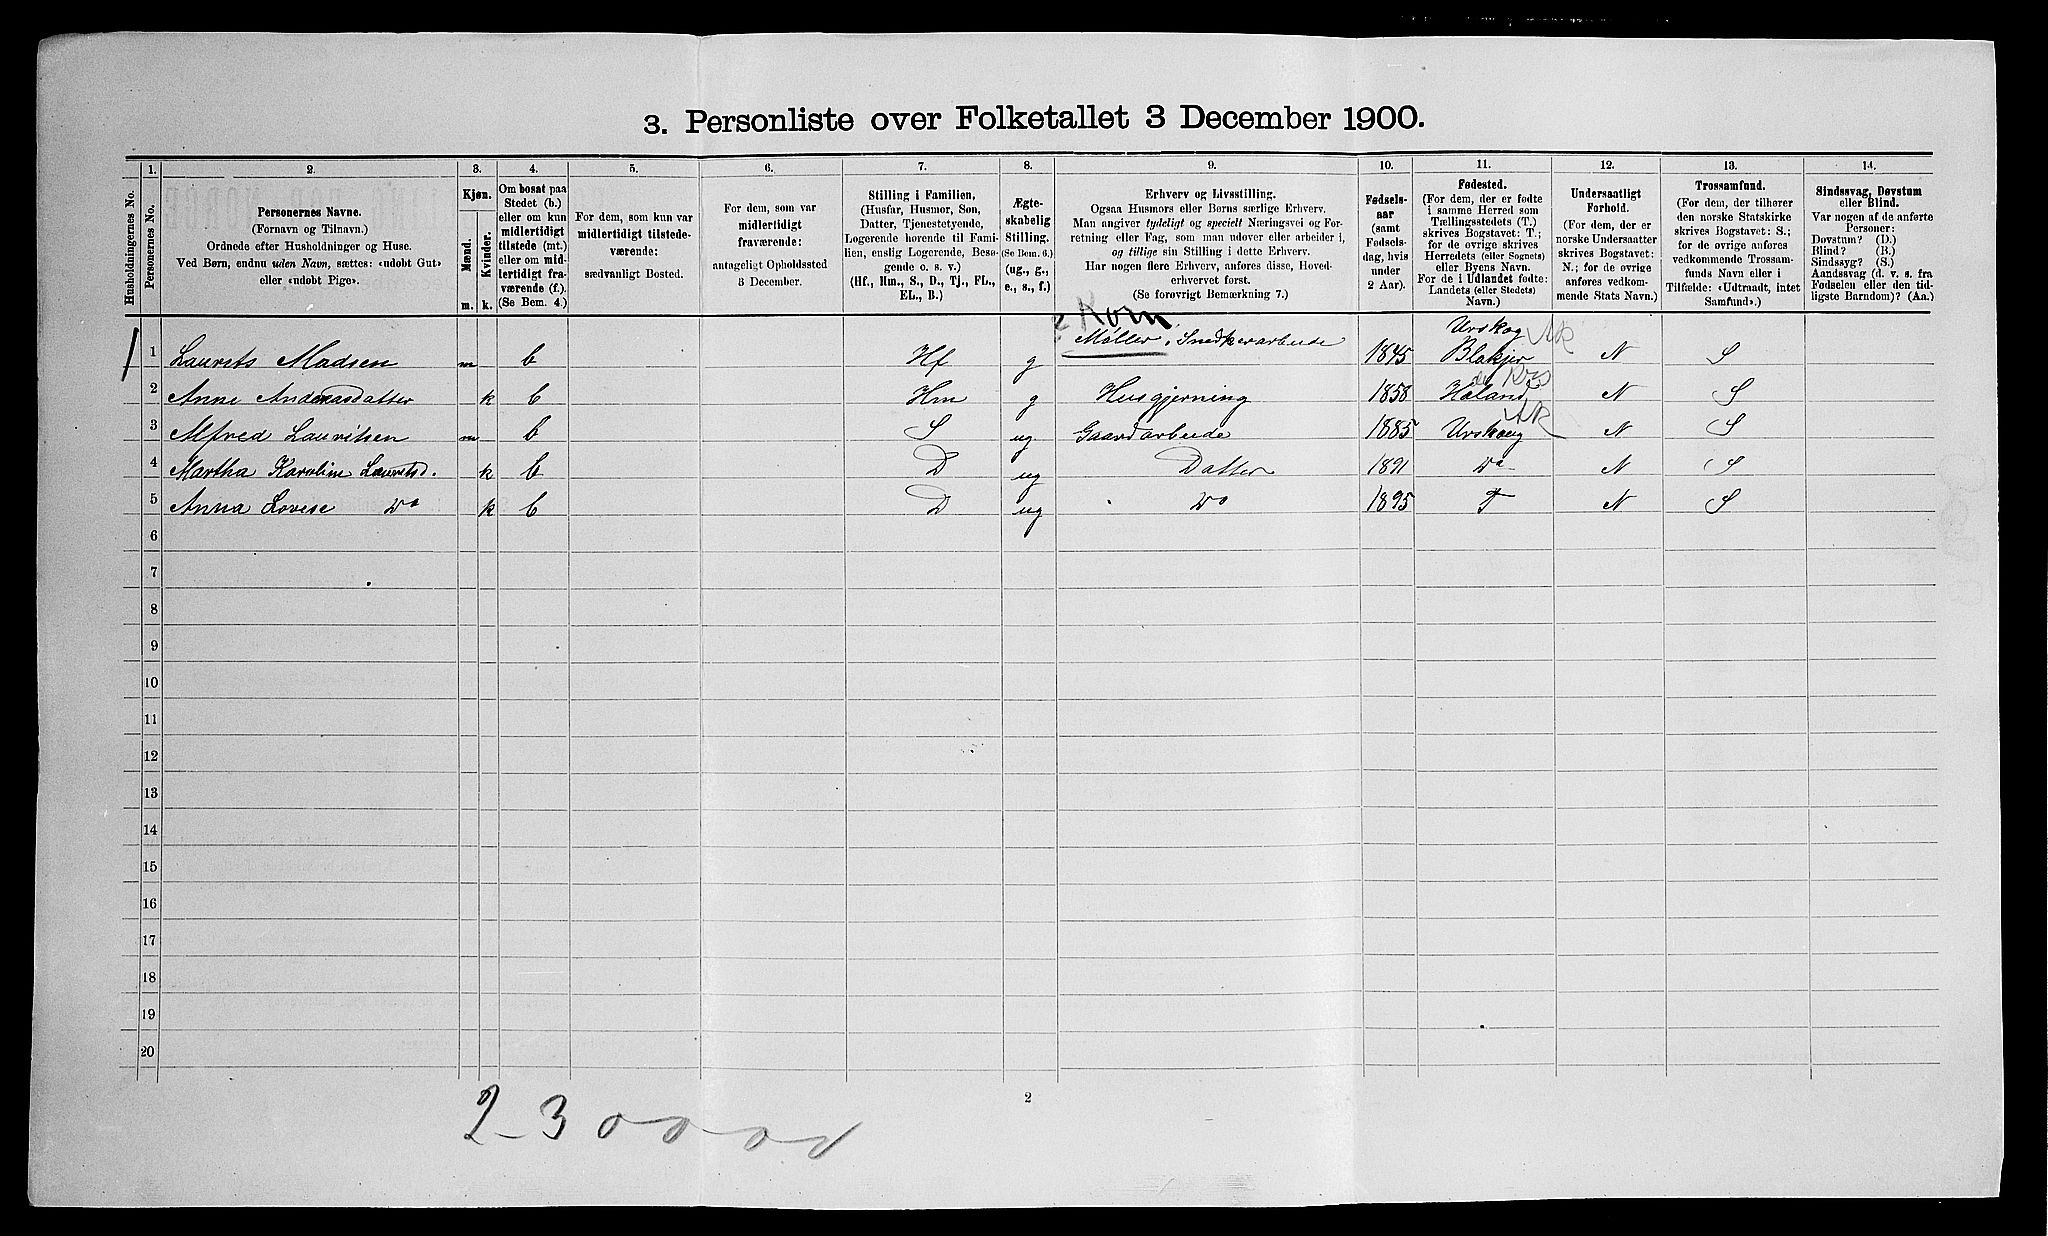 3. Personliste over Folketallet 3 December 1900.
Husholdningernes No.
1.
Personernes No.
2.
Personernes Navne.
(Fornavn og Tilnavn.)
Ordnede efter Husholdninger og Huse.
Ved Børn, endnu uden Navn, sættes: «udøbt Gut»
eller «udøbt Pige».
3.
Kjøn.
Mænd.
Kvinder.
m. k.
4.
Om bosat paa
Stedet (b.)
eller om kun
midlertidigt
tilstede (mt.)
eller om mid-
lertidigt fra-
værende (f.).
(Se Bem. 4.)
5.
For dem, som kun var
midlertidigt tilstede-
værende:
sædvanligt Bosted.
6.
For dem, som var
midlertidigt
fraværende:
antageligt Opholdssted
3 December.
7.
Stilling i Familien,
(Husfar, Husmor, Søn,
Datter, Tjenestetyende,
Logerende hørende til Fami-
lien, enslig Logerende, Besø-
gende o. s. v.)
(Hf., Hm., S., D., Tj., FL.,
EL., B.)
8.
Ægte-
skabelig
Stilling.
(Se Bem. 6.)
(ug., g.,
e., s., f.)
9.
Erhverv og Livsstilling.
Ogsaa Husmors eller Børns særlige Erhverv.
Man angiver tydeligt og specielt Næringsvei og For-
retning eller Fag, som man udøver eller arbeider i,
og tillige sin Stilling i dette Erhverv.
Har nogen flere Erhverv, anføres disse, Hoved-
erhvervet først.
(Se forøvrigt Bemærkning 7.)
10.
Fødsels-
aar
(samt
Fødsels-
dag, hvis
under
2 Aar).
11.
Fødested.
(For dem, der er fødte
i samme Herred som
Tællingsstedets (T.)
skrives Bogstavet: T.;
for de øvrige skrives
Herredets (eller Sognets)
eller Byens Navn.
For de i Udlandet fødte:
Landets (eller Stedets)
Navn.)
12.
Undersaatligt
Forhold.
(For dem, der er
norske Undersaatter
skrives Bogstavet:
N.; for de øvrige
anføres vedkom-
mende Stats Navn.)
13.
Trossamfund.
(For dem, der tilhører
den norske Statskirke
skrives Bogstavet: S.;
for de øvrige anføres
vedkommende Trossam-
funds Navn eller i
Tilfælde: «Udtraadt, intet
Samfund».)
14.
Sindssvag, Døvstum
eller Blind.
Var nogen af de anførte
Personer:
Døvstum? (D.)
Blind? (B.)
Sindssyg? (S.)
Aandssvag (d. v. s. fra
Fødselen eller den tid-
ligste Barndom)? (Aa.)
Korn
Urskog AK
1 Laurits Madsen m b Hf g Møller, Snedkerarbeide 1845 Blakjer N S
2 Anne Andersdatter k b Hm g Husgjerning 1858 Høland N S
AK
3 Alfred Lauritsen m b S ug Gaardarbeide 1885 Urskoug N S
4 Martha Karoline Lauritsd. k b D ug Datter 1891 Do N S
5 Anna Lovise Do k b D ug Do 1895 T N S
6
7
8
9
10
11
12
13
14
15
16
17
18
19
20
2
2-3 0 0 0 0